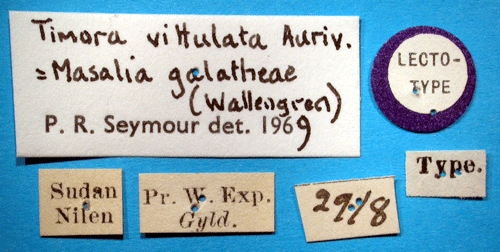 Timora vittulata Auriv.
= Masalia galatheae
(Wallengren)
P. R. Seymour det. 1969
LECTO-
TYPE
Type.
Sudan
Nilen
Pr. W. Exp.
Gyld.
29/8